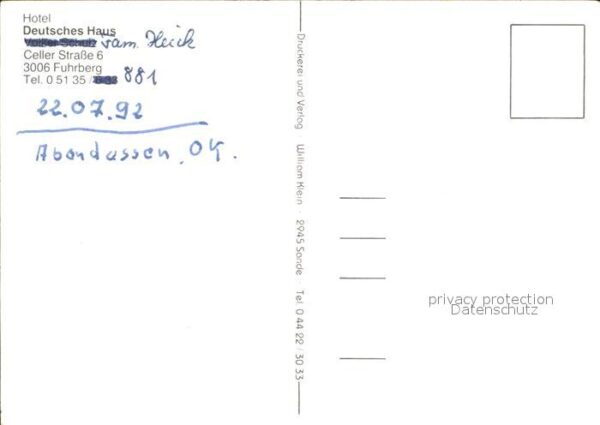 Hotel
Deutsches Haus
Fam. Heick
Celler Straße 6
3006 Fuhrberg
Tel. 0 51 35 / 881
22.07.92
Abendassen, OK.
Druckerei und Verlag · William Klein · 2945 Sande · Tel. 0 44 22 / 30 33
privacy protection
Datenschutz